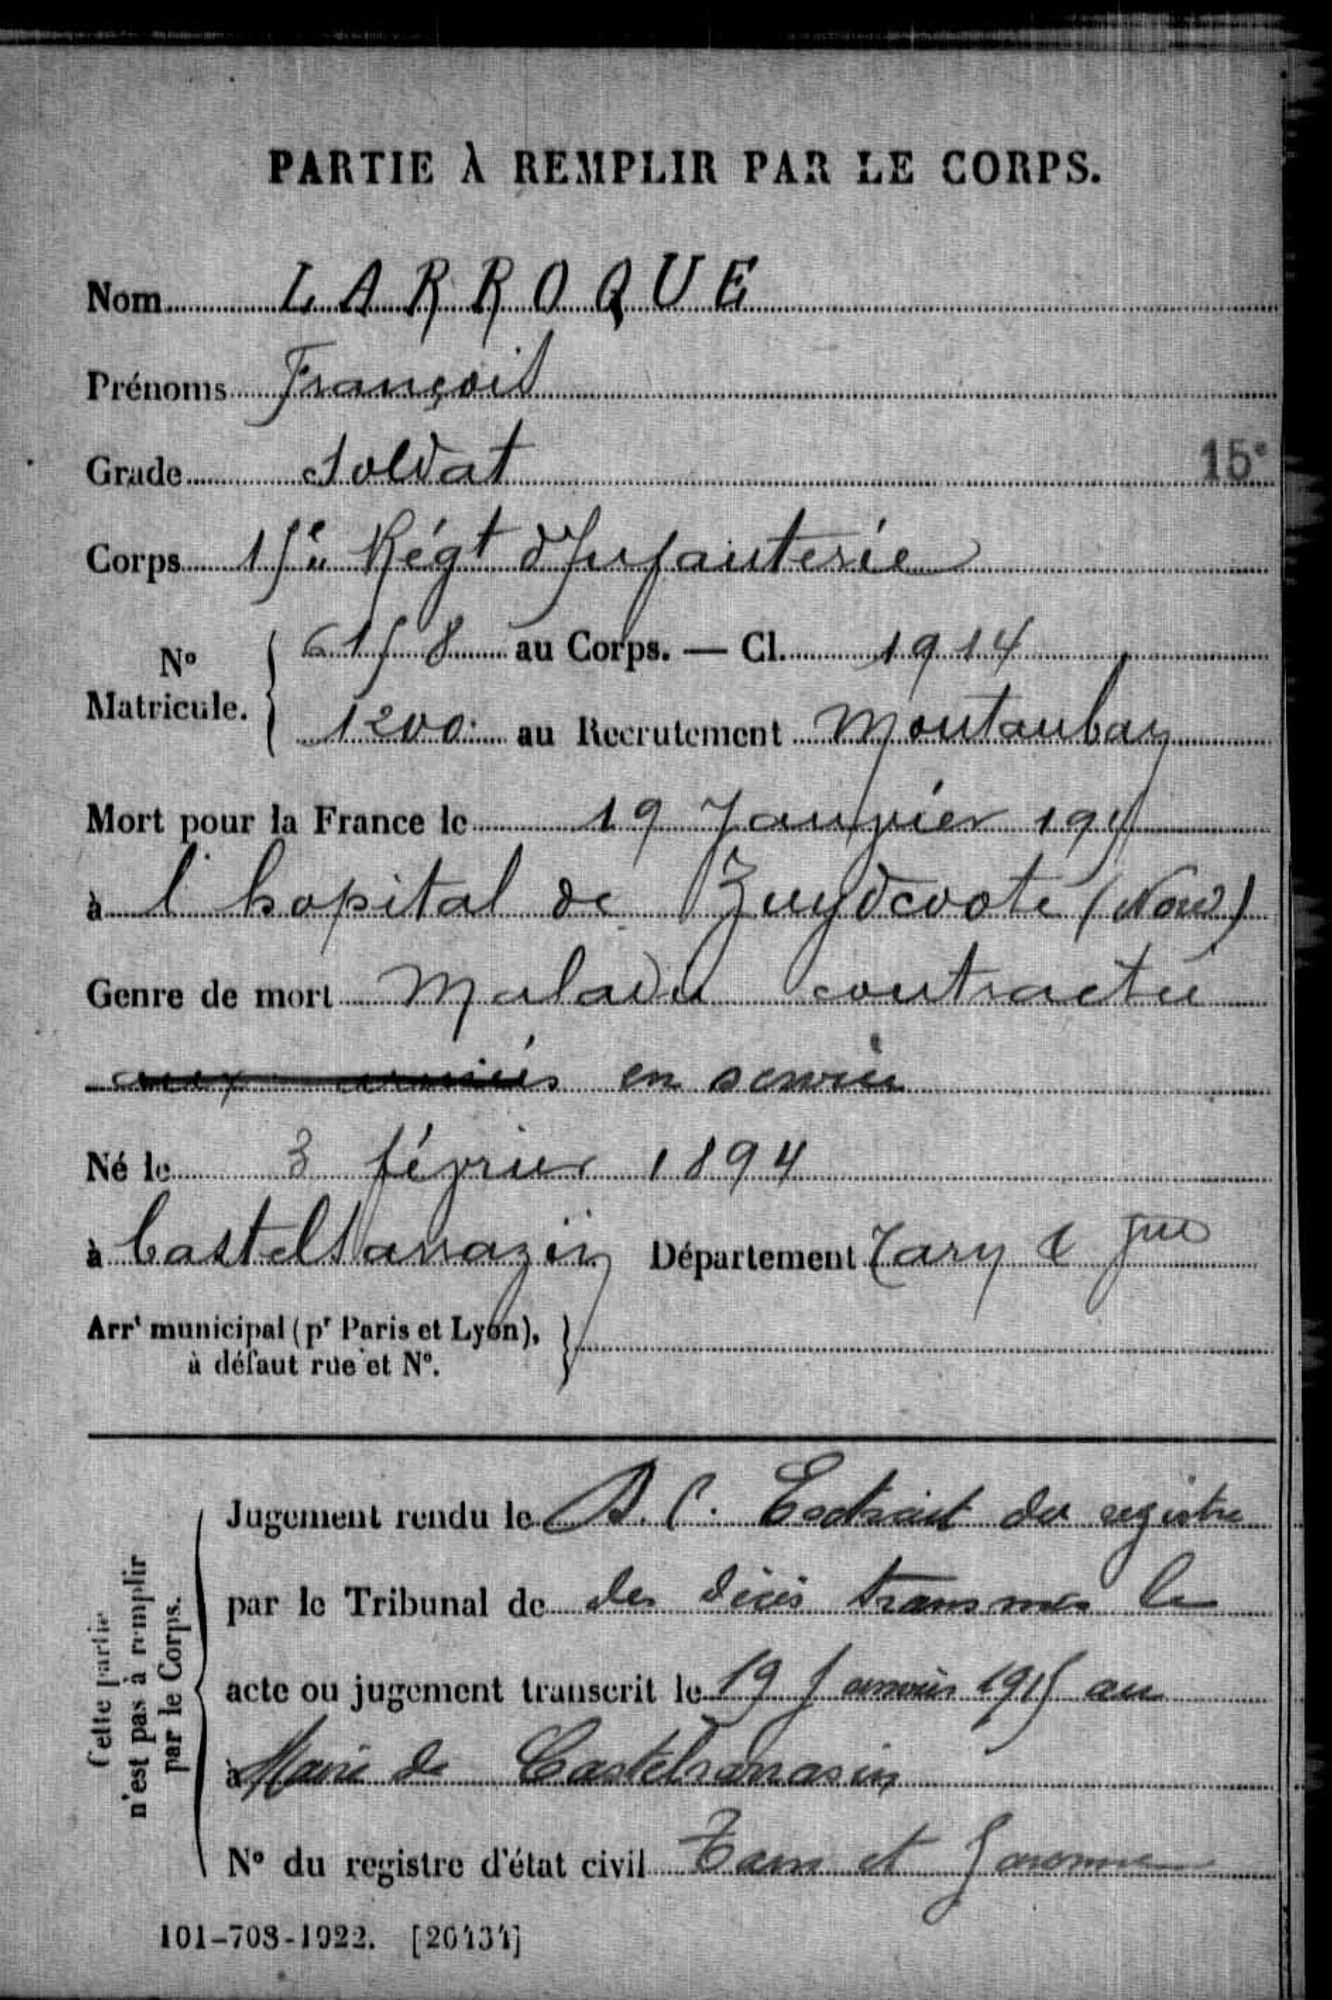 PARTIE À REMPLIR PAR LE CORPS.
Nom LARROQUE
Prénoms François
Grade Soldat
15e
Corps 15e Régt d'Infanterie
No Matricule. { 6158 au Corps. — Cl. 1914
1200 au Recrutement Montauban
Mort pour la France le 19 Janvier 1915
à l'hopital de Zuydcoote (Nord)
Genre de mort Maladie contractée
aux armées en service
Né le 3 février 1894
à Castelsarrazin Département Tarn & Gne
Arrt municipal (pr Paris et Lyon), }
à défaut rue et No.
Cette partie
n'est pas à remplir
par le Corps.
Jugement rendu le Extrait du registre
par le Tribunal de des décès transmis le
acte ou jugement transcrit le 19 Janvier 1915 au
à Maire de Castelsarrasin
No du registre d'état civil Tarn et Garonne
101-708-1922. [20434]